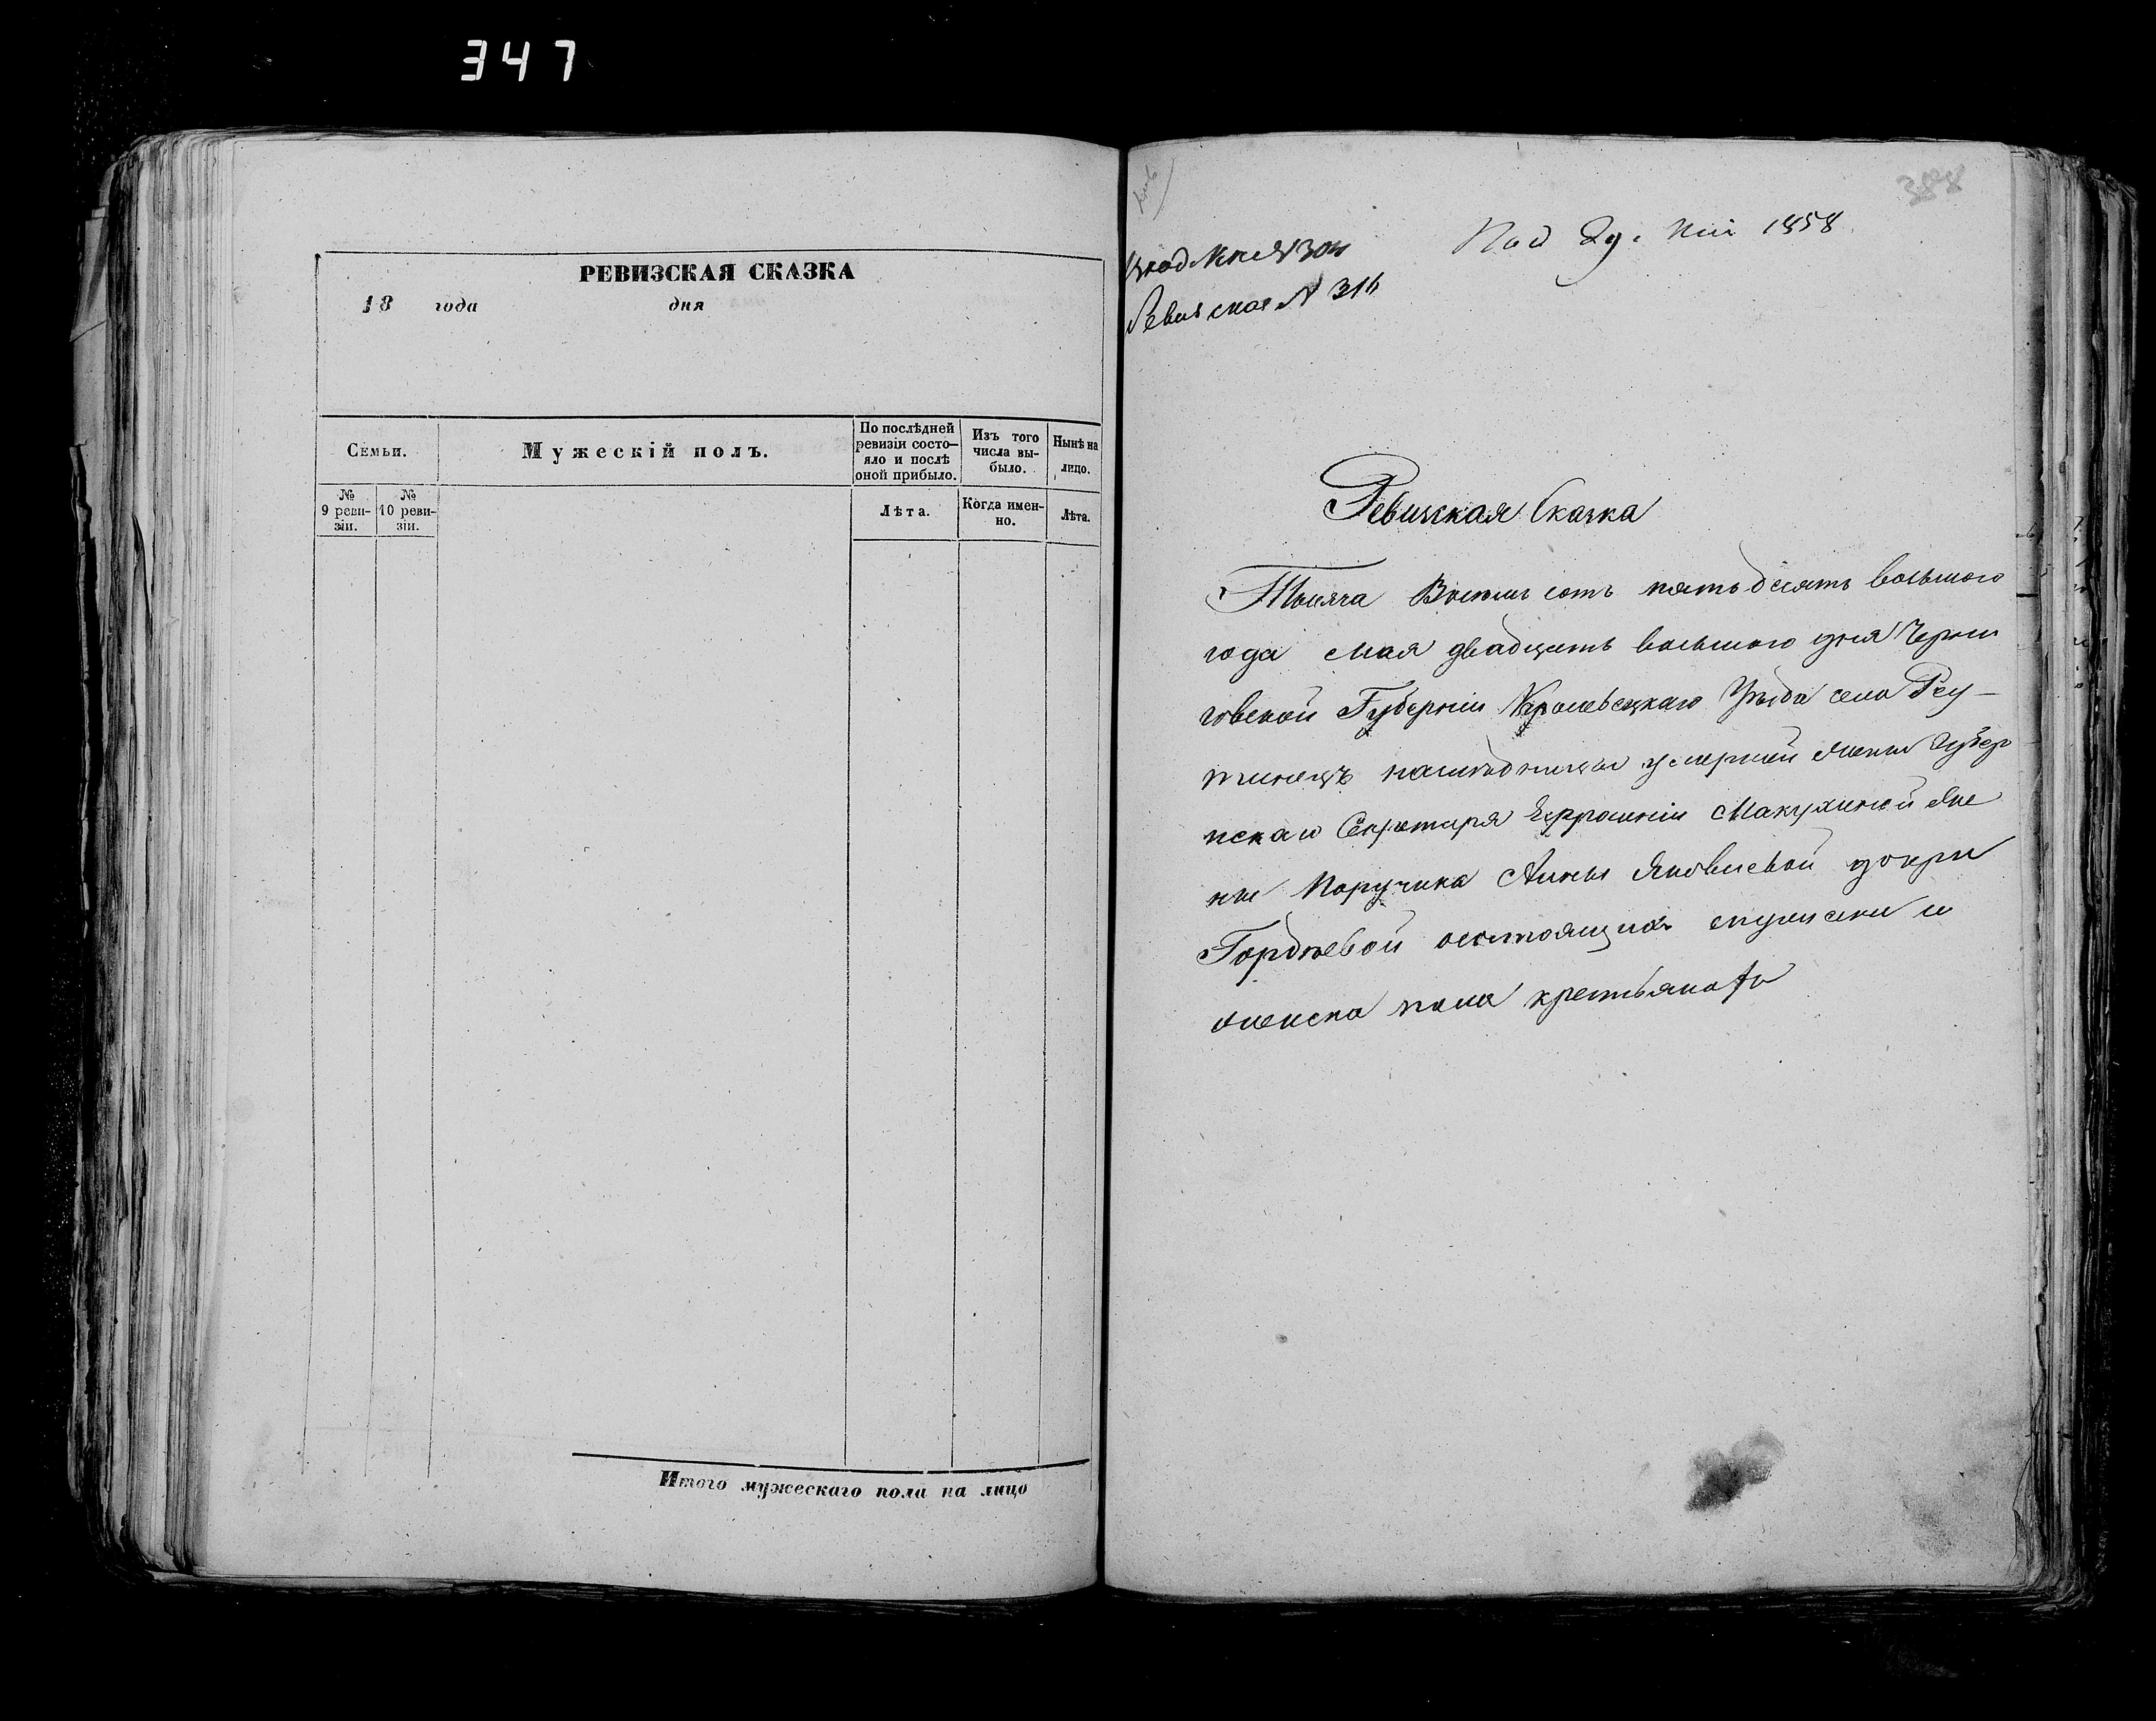 347
РЕВИЗСКАЯ СКАЗКА
18 года дня
Семьи.
Мужескій полъ.
По послѣдней ревизіи состо-
яло и послѣ
оной прибыло.
Изъ того
числа вы-
было.
Нынѣ на
лицо.
№
9 реви-
зіи.
№
10 реви-
зіи.
Лѣта.
Когда имен-
но.
Лѣта.
Итого мужескаго пола на лицо
388
Под 29. 1858
Ревизская № 316
Ревизская Сказка
Тысяча Восемь сотъ пятьдесятъ восьмого
года мая двадцать восьмого дня Черни
говской Губерніи Кролевецкаго Уѣзда села Реу-
тинецъ наслѣдницы умершей жены Губер
нскаго Секретаря Ефросиніи Макухиной же
ны Поручика Анны Яковлевой дочери
Гордѣевой состоящихъ мужска и
женска пола крестьянахъ